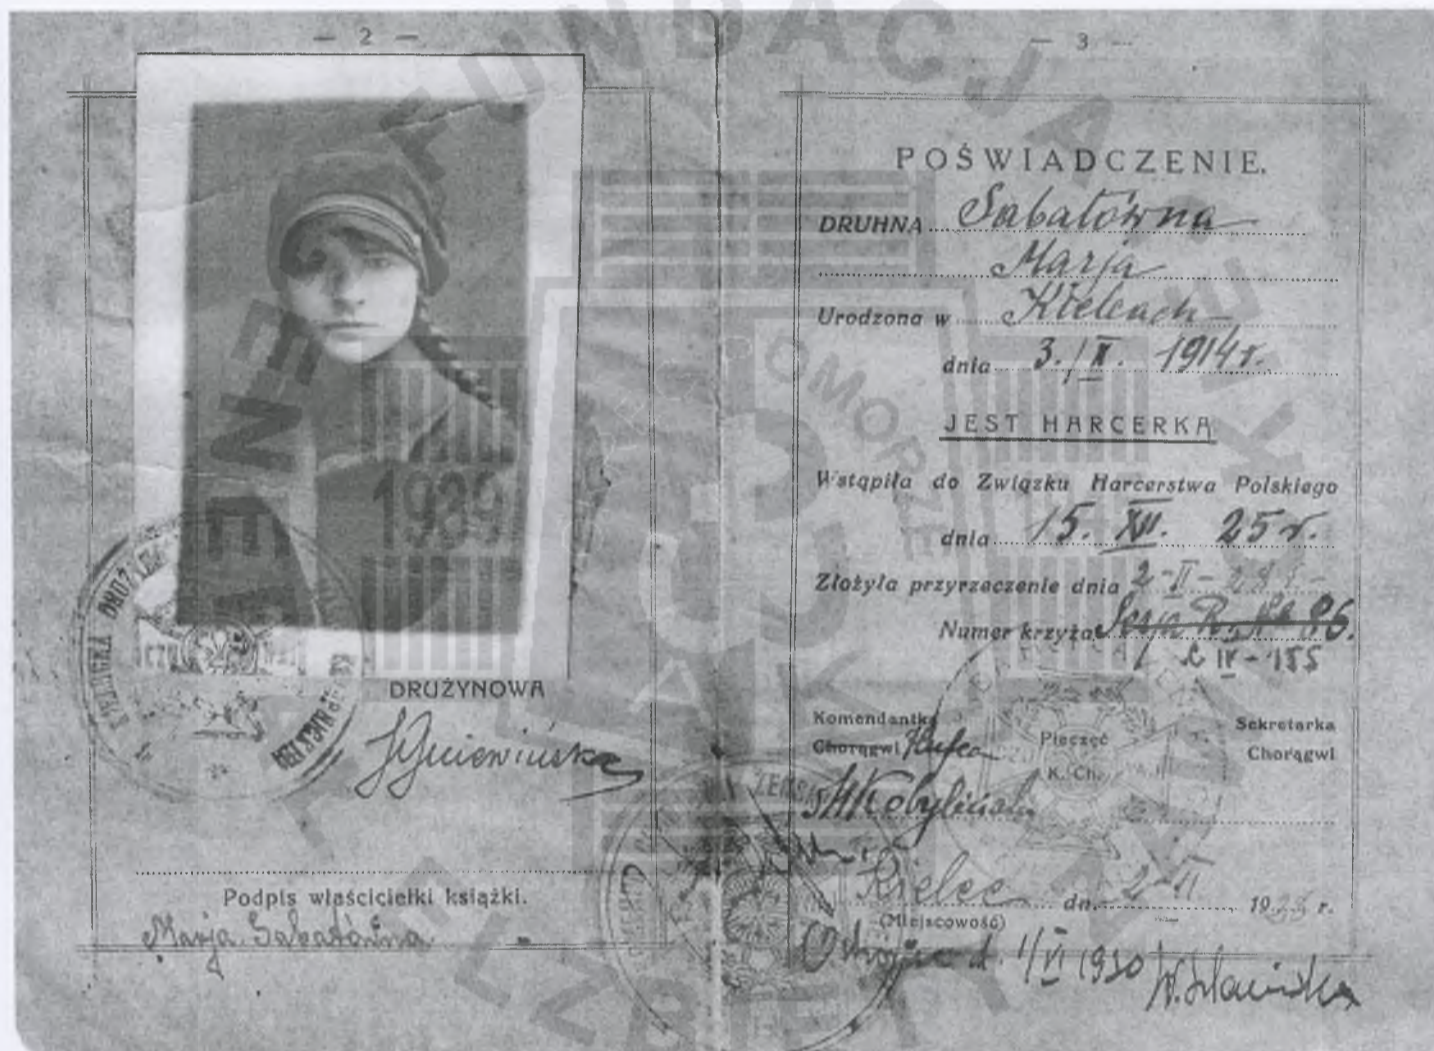 — 2 —
DRUŻYNOWA
Podpis właścicielki książki.
Marja Sabatówna
— 3 —
POŚWIADCZENIE.
DRUHNA Sabatówna
Marja
Urodzona w Kielcach
dnia 3./X. 1914 r.
JEST HARCERKĄ
Wstąpiła do Związku Harcerstwa Polskiego
dnia 15. XII. 25 r.
Złożyła przyrzeczenie dnia 2-II-28 r.
Numer krzyża Serja R. № 86.
C IV - 155
Komendantka
Chorągwi Hufca
Sekretarka
Chorągwi
Pieczęć
K. Ch.
Kielce dn. 2-II 1928 r.
(Miejscowość)
d. 1/VI 1930
FUNDACJA
1939
POMORZE
AK
ELŻBIETY